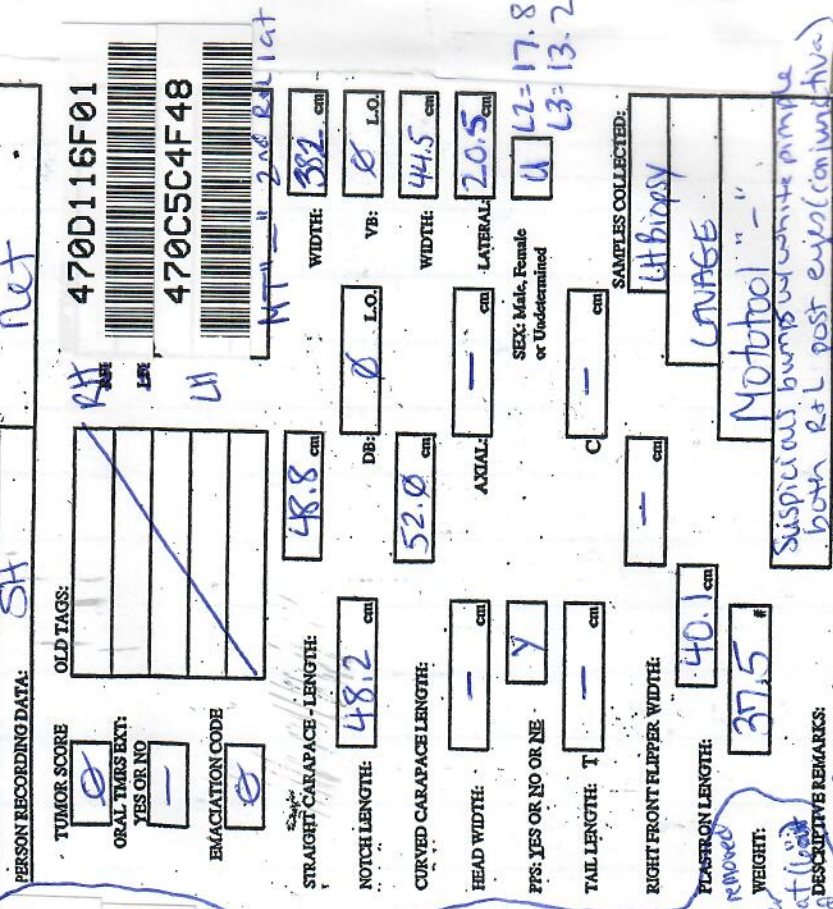 PERSON RECORDING DATA: SH Net
TUMOR SCORE Ø
ORAL TMRS EXT: YES OR NO —
EMACIATION CODE Ø
OLD TAGS:
RH 470D116F01
LH 470C5C4F48
MT "-" 2nd R+L lat
STRAIGHT CARAPACE - LENGTH: 48.8 cm WIDTH: 38.2 cm
NOTCH LENGTH: 48.2 cm DB: Ø L.O. VB: Ø L.O.
CURVED CARAPACE LENGTH: 52.Ø cm WIDTH: 44.5 cm
HEAD WIDTH: — cm AXIAL: — cm LATERAL: 20.5 cm
PPS: YES OR NO OR NE Y SEX: Male, Female or Undetermined U L2=17.8
L3=13.2
TAIL LENGTH: T — cm C — cm
RIGHT FRONT FLIPPER WIDTH: — cm SAMPLES COLLECTED:
LH Biopsy
PLASTRON LENGTH: 40.1 cm LAVAGE
removed
WEIGHT: 37.5 # Mototool "-"
at least
DESCRIPTIVE REMARKS: Suspicious bumps w/ white pimple
both R+L post eyes (conjunctiva)